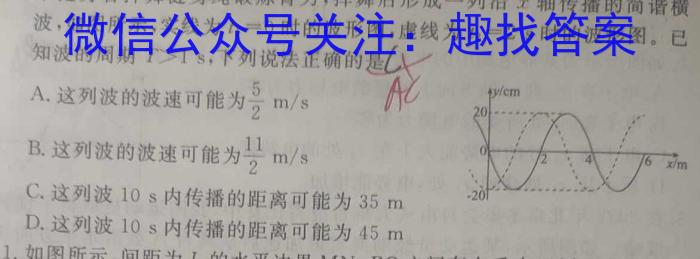 一列沿 x 轴传播的简谐横
波,
微信公众号关注:趣找答案
已
知波的周期 T>1 s,下列说法正确的是
AC
A. 这列波的波速可能为 5/2 m/s
B. 这列波的波速可能为 11/2 m/s
C. 这列波 10 s 内传播的距离可能为 35 m
D. 这列波 10 s 内传播的距离可能为 45 m
y/cm
20
0
2
4
6
x/m
-20
1. 如图所示,间距为 L 的水平边界 MN、PQ